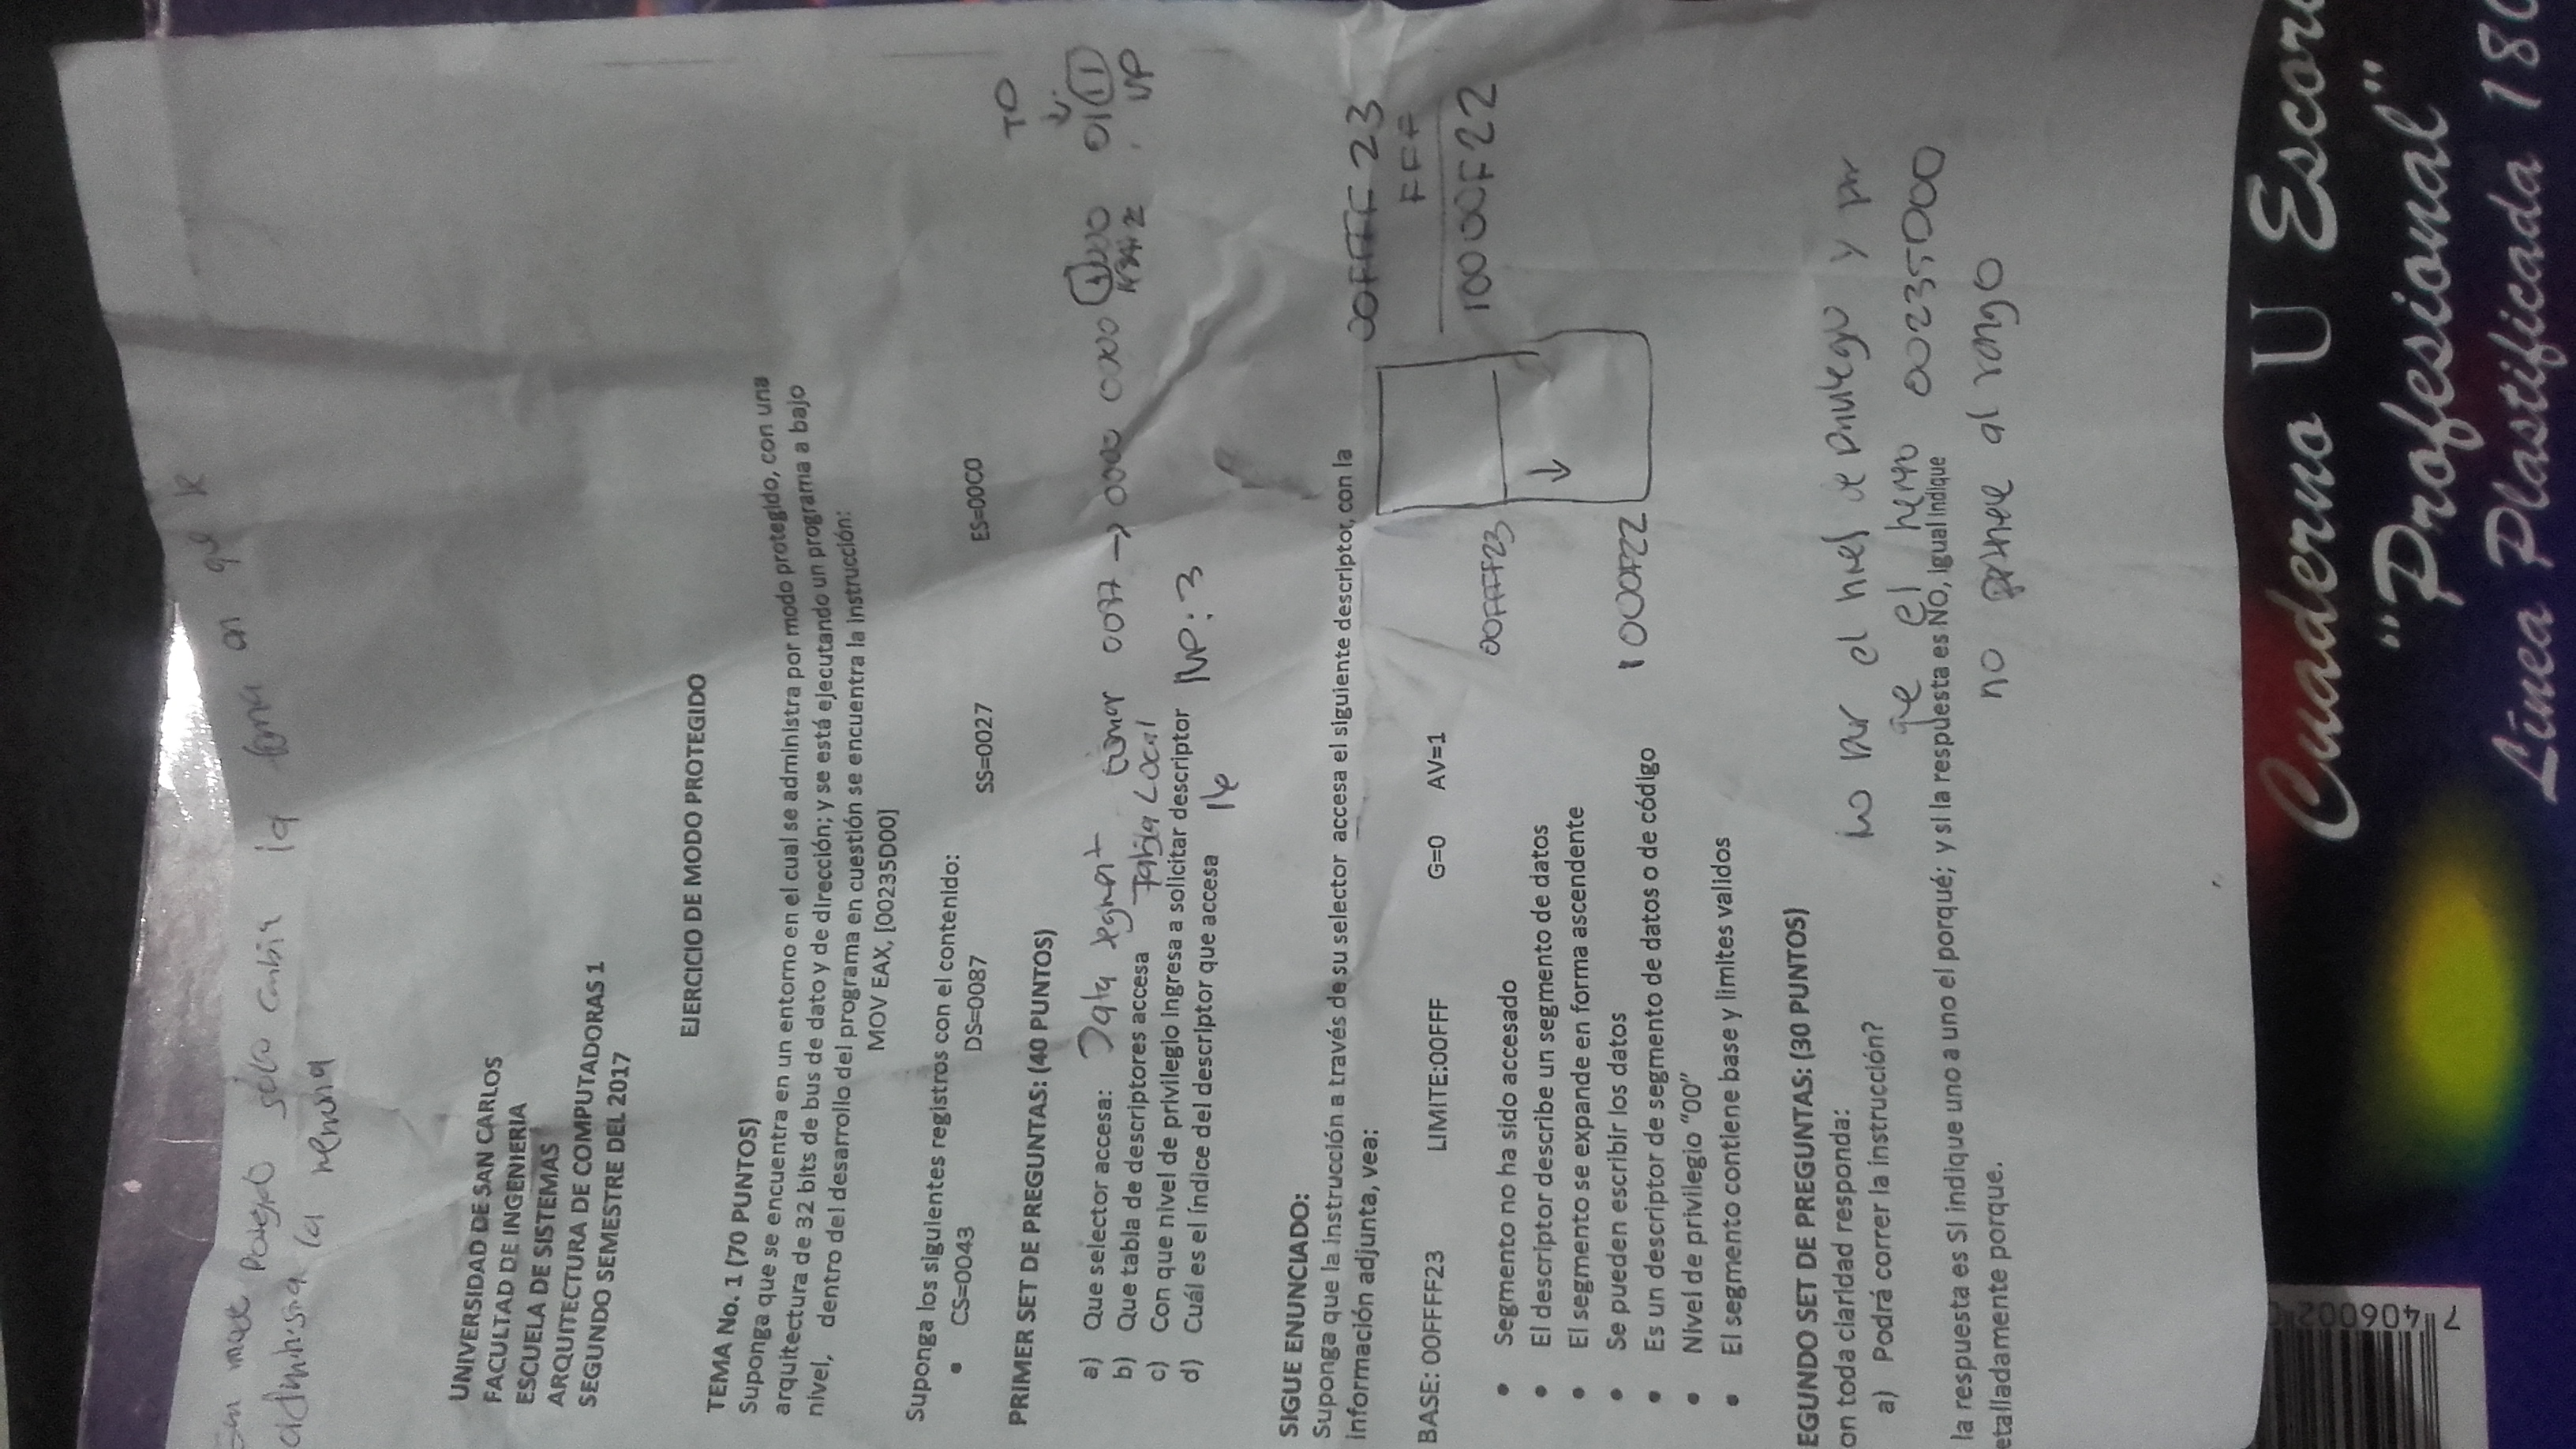 modo Protegido solo cambia la forma en que se
administra la memoria
UNIVERSIDAD DE SAN CARLOS
FACULTAD DE INGENIERIA
ESCUELA DE SISTEMAS
ARQUITECTURA DE COMPUTADORAS 1
SEGUNDO SEMESTRE DEL 2017
EJERCICIO DE MODO PROTEGIDO
TEMA No. 1 (70 PUNTOS)
Suponga que se encuentra en un entorno en el cual se administra por modo protegido, con una
arquitectura de 32 bits de bus de dato y de dirección; y se está ejecutando un programa a bajo
nivel, dentro del desarrollo del programa en cuestión se encuentra la instrucción:
MOV EAX, [00235D00]
Suponga los siguientes registros con el contenido:
• CS=0043 DS=0087 SS=0027 ES=00C0
TO
PRIMER SET DE PREGUNTAS: (40 PUNTOS)
a) Que selector accesa: Data segment → 0000 0000 1000 0111
b) Que tabla de descriptores accesa Tabla Local
c) Con que nivel de privilegio ingresa a solicitar descriptor NP: 3
d) Cuál es el índice del descriptor que accesa 16
SIGUE ENUNCIADO:
Suponga que la instrucción a través de su selector accesa el siguiente descriptor, con la
información adjunta, vea:
00FFFF 23
FFF
10000F22
BASE: 00FFFF23 LIMITE:00FFF G=0 AV=1
00FFFF23
• Segmento no ha sido accesado
• El descriptor describe un segmento de datos
• El segmento se expande en forma ascendente
• Se pueden escribir los datos
1000F22
• Es un descriptor de segmento de datos o de código
• Nivel de privilegio "00"
• El segmento contiene base y limites validos
EGUNDO SET DE PREGUNTAS: (30 PUNTOS)
on toda claridad responda:
a) Podrá correr la instrucción? No por el nivel de privilegio y por
que el 00235D00
la respuesta es SI indique uno a uno el porqué; y si la respuesta es NO, igual indique
no pertenece al rango
etalladamente porque.
7 406002
Cuaderno U Escor
"Profesional"
Línea Plastificada 180